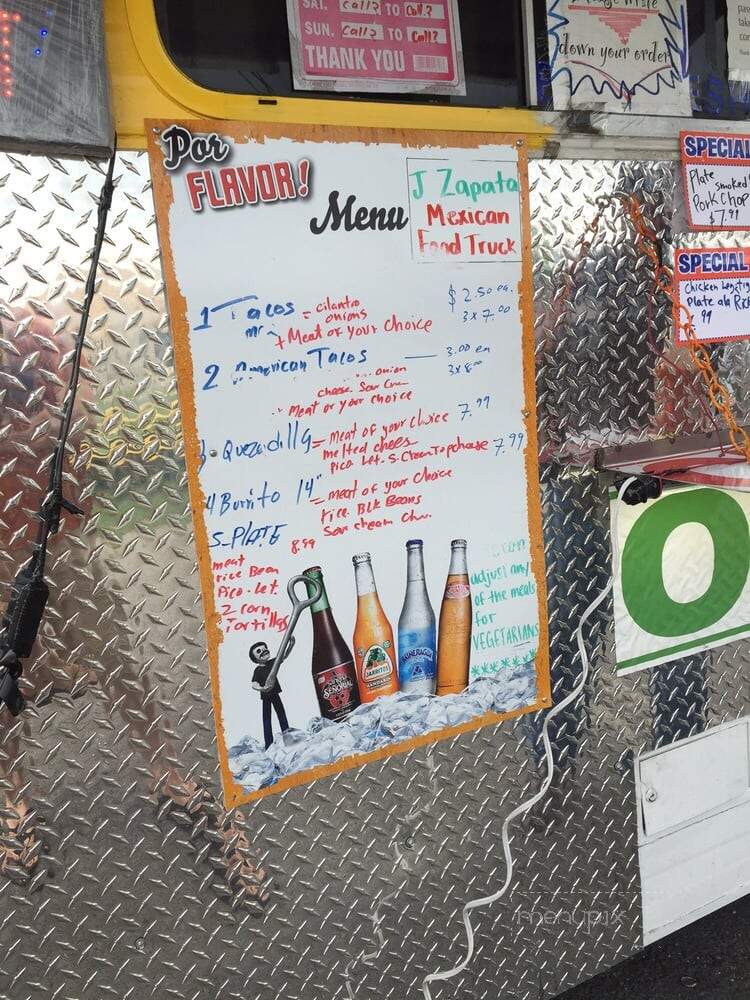 SAT. Call? TO Call?
SUN. Call? TO Call?
THANK YOU
down your order
Por
FLAVOR!
Menu
J Zapata
Mexican
Food Truck
1 Tacos = cilantro
onions
+ Meat of your choice
$2.50 ea.
3x7.00
2 American Tacos — 3.00 ea
3x8.00
onion
cheese. Sour
Meat or your choice
Quezadilla = meat of your choice 7.99
melted chees
Pico Let. S. Cream
7.99
4 Burrito 14" = meat of your choice
rice. Blk Beans
Sour cream
5-PLATE 8.99
meat
rice Bean
Pico. Let.
2 corn
Tortillas
adjust any
of the meals
for
VEGETARIANS
SEÑORIAL
JARRITOS
MANDARIN
SPECIAL
Plate
smoked
Pork Chop
$7.99
SPECIAL
Chicken
Plate ala
99
O
menupix